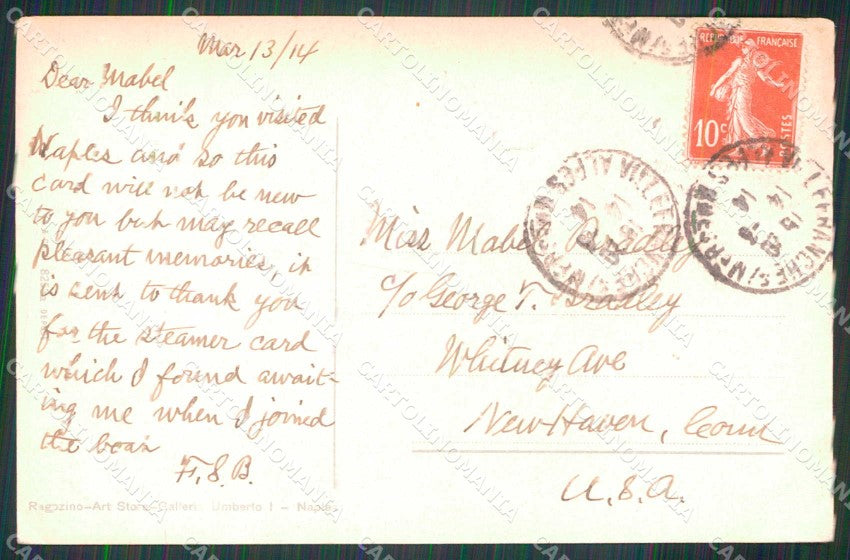 Mar 13/14
Dear Mabel
I think you visited
Naples and so this
card will not be new
to you but may recall
pleasant memories, it
is sent to thank you
for the steamer card
which I found await-
ing me when I joined
the boat
F.S.B.
Ragozino—Art Store—Galleria Umberto I — Naples
REPUBLIQUE FRANÇAISE
10c
POSTES
VILLEFRANCHE S/ MER
ALPES
14
VILLEFRANCHE S/ MER
ALPES
14
Miss Mabel Bradley
c/o George T. Bradley
Whitney Ave
New Haven, Conn
U.S.A.
CARTOLINOMANIA